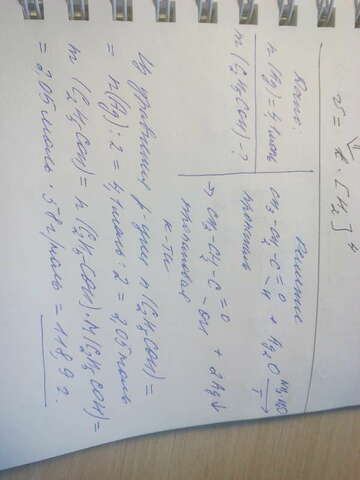 v = k · [H₂]⁴
Дано:
n(Ag) = 4,1 моль
m(C₂H₅COH) - ?
Решение
CH₃-CH₂-C=O -H + Ag₂O NH₃·H₂O → T
пропаналь
→ CH₃-CH₂-C=O -OH + 2Ag↓
пропановая
к-та
Из уравнения р-ции n(C₂H₅COH) =
= n(Ag) : 2 = 4,1 моль : 2 = 2,05 моль
m(C₂H₅COH) = n(C₂H₅COH)·M(C₂H₅COH) =
= 2,05 моль · 58 г/моль = 118,9 г.